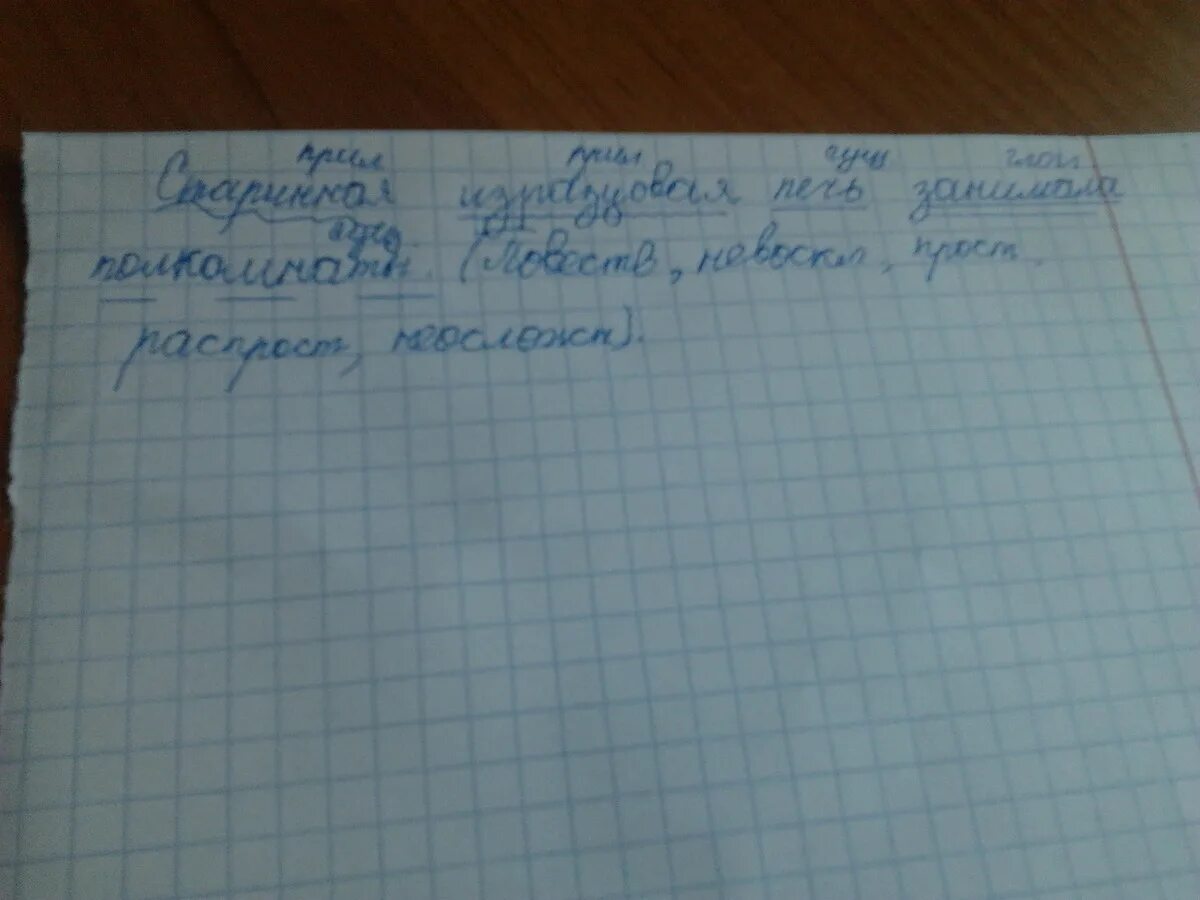 прил прил сущ глаг
Старинная изразцовая печь занимала
сущ
полкомнаты. (Повеств, невоскл, прост,
распрост, неосложн).